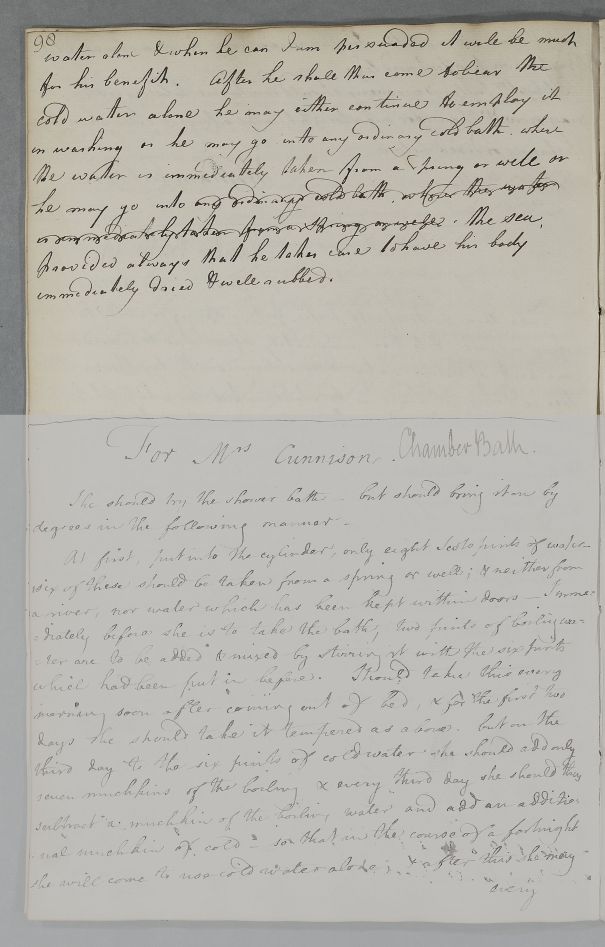 98
water alone & when he can I am persuaded it will be much
for his benefit. After he shall thus come to bear the
cold water alone he may either continue to employ it
in washing or he may go into any ordinary cold bath. where
the water is immediately taken from a spring or well or
he may go into any ordinary cold bath where the water
is immediately taken from a spring or well. the sea,
provided always that he takes care to have his body
immediately dried & well rubbed.
For Mrs Cunnison. Chamber Bath.
She should try the shower bath - but should bring it on by
degrees in the following manner -
At first, put into the cylinder, only eight Scots pints of water
six of these should be taken from a spring or well; & neither from
a river, nor water which has been kept within doors - Imme-
:diately before she is to take the bath, two pints of boiling wa-
:ter are to be added & mixed by stirring it with the six pints
which had been put in before. Should take this every
morning soon after coming out of bed, & for the first two
days she should take it tempered as above. but on the
third day to the six pints of cold water she should add only
seven muchkins of the boiling & every third day she should thus
subtract a muchkin of the boiling water and add an additio-
:nal muchkin of cold - so that in the course of a fortnight
she will come to use cold water alone; & after this she may
every